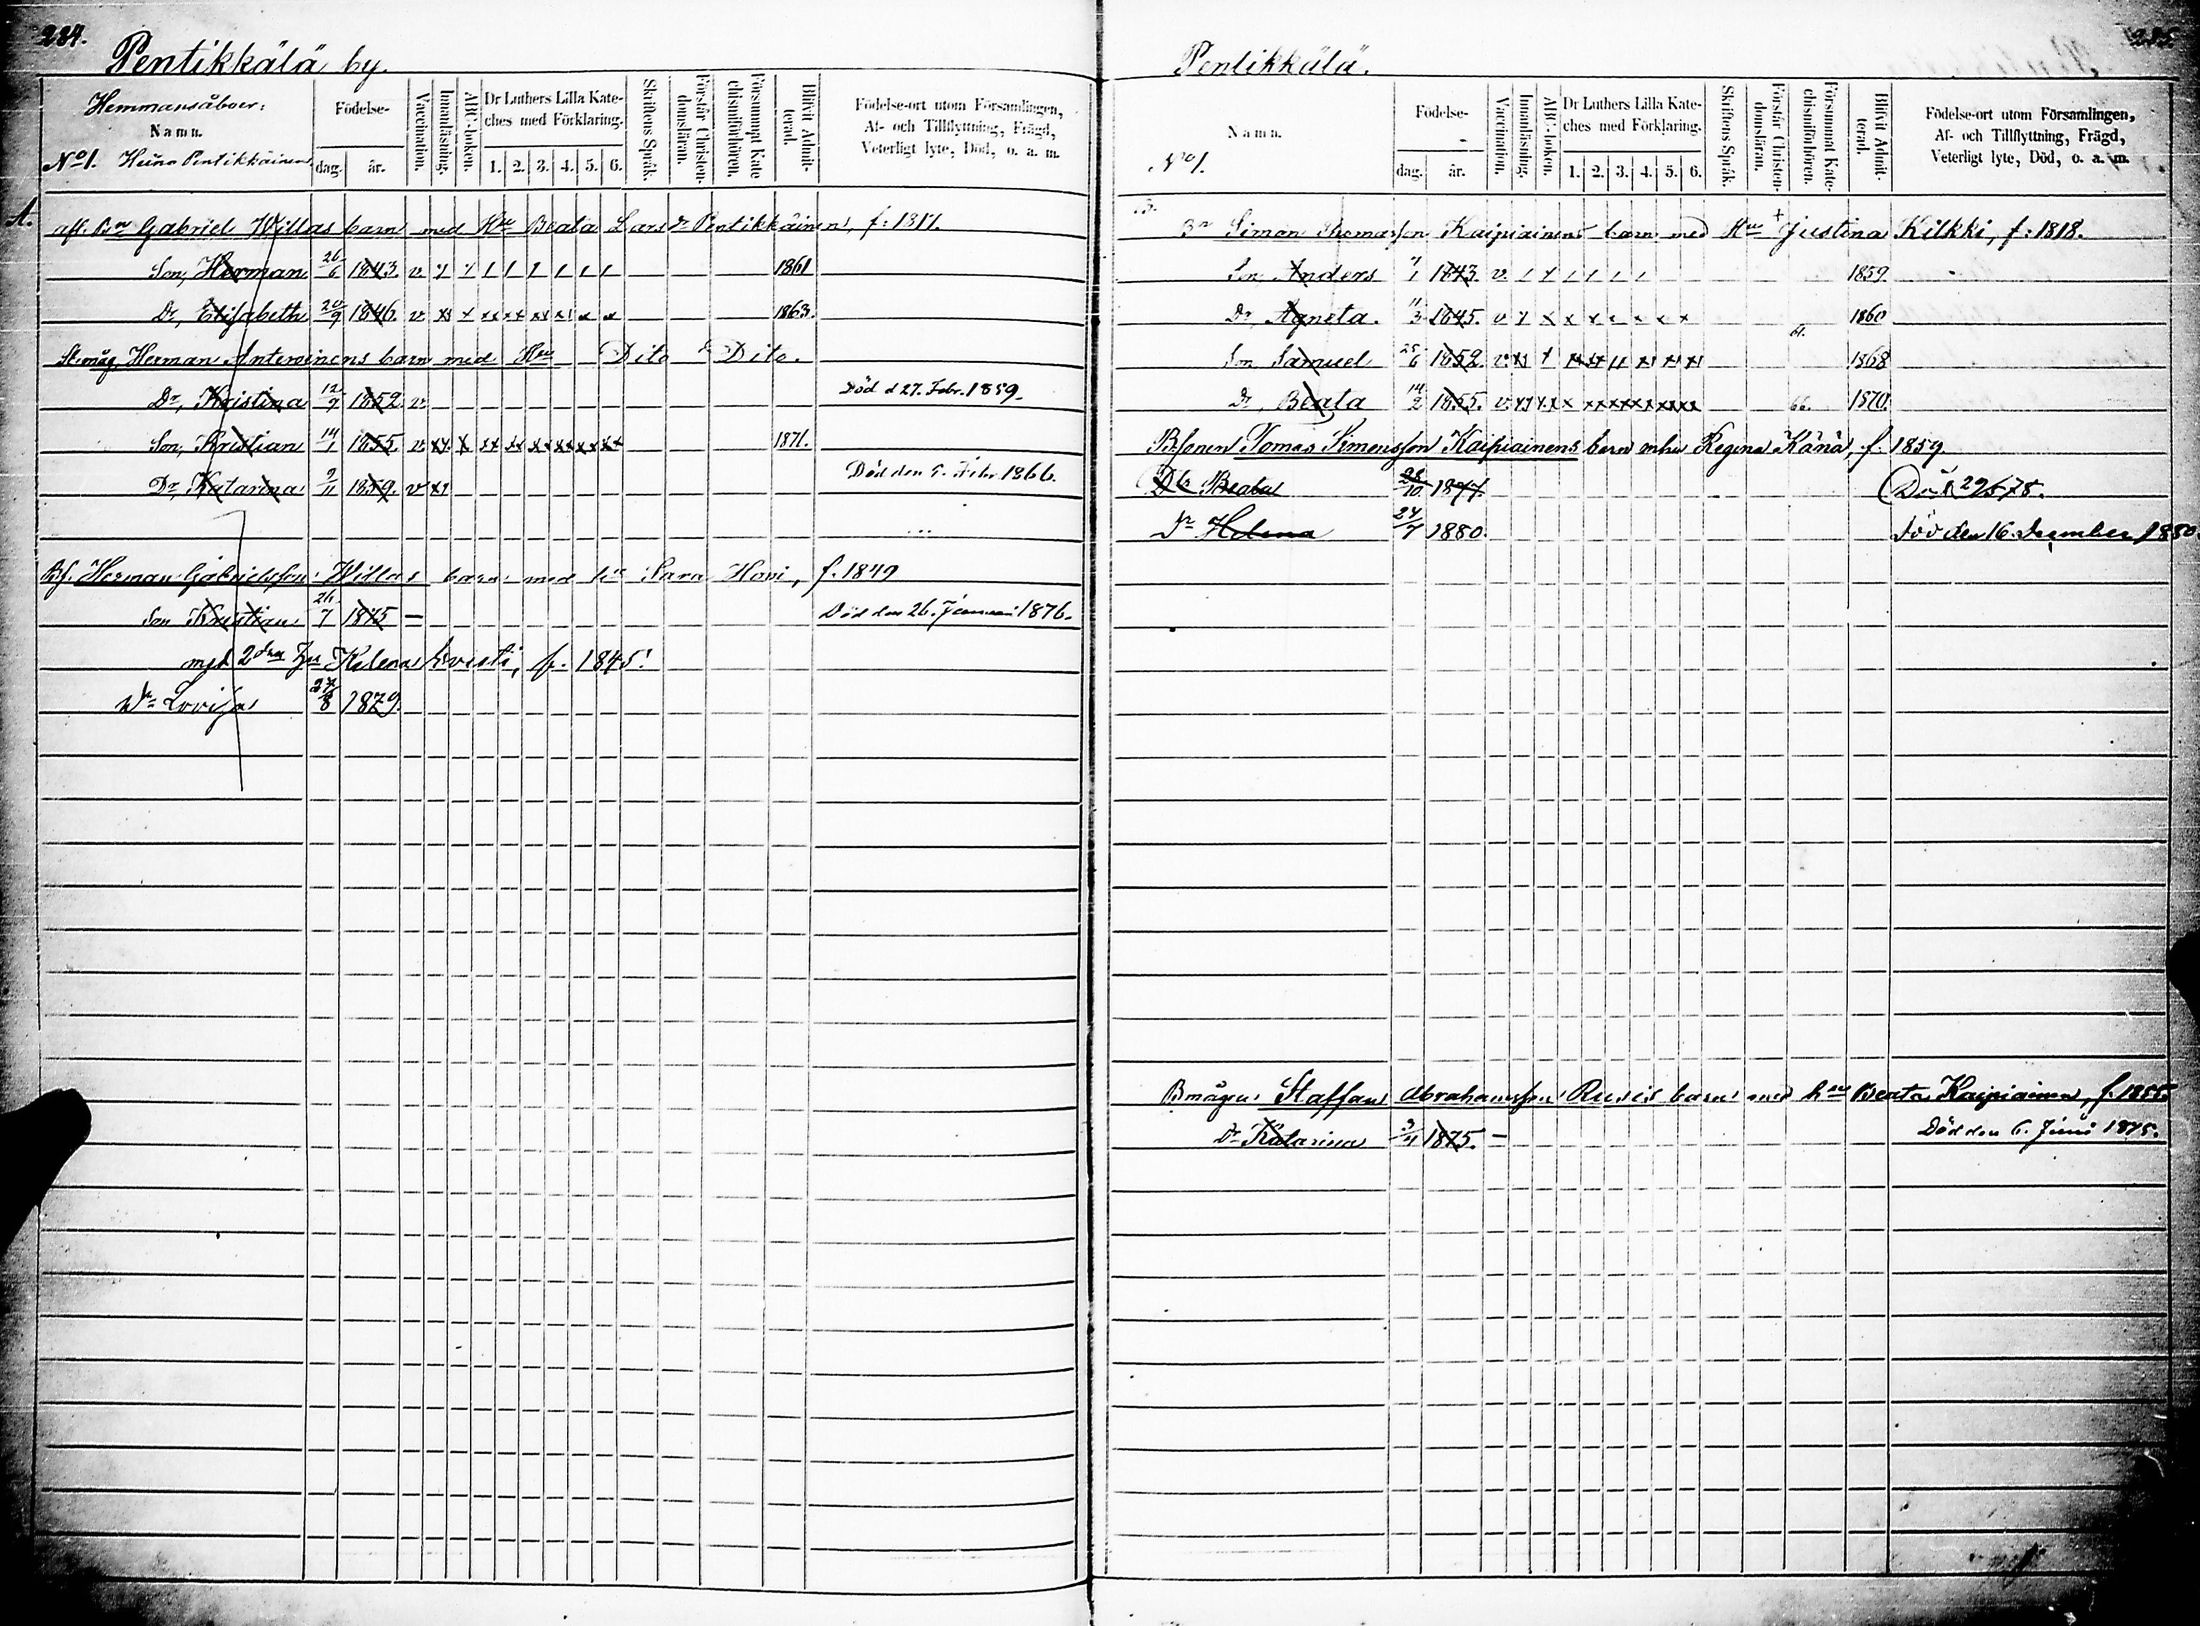 284.
Pentikkälä by.
Hemmansåboer:
Namn.
No 1. Heina Pentikkäinen
Födelse-
dag. år.
Vaccination.
Innanläsning.
ABC-boken.
Dr Luthers Lilla Kate-
ches med Förklaring.
1. 2. 3. 4. 5. 6.
Skriftens Språk.
Förstår Christen-
domsläran.
Försummat Kate
chismiförhören.
Blifvit Admit-
terad.
Födelse-ort utom Församlingen,
Af- och Tillflyttning, Frägd,
Veterligt lyte, Död, o. a. m.
A. afl. Bn Gabriel Willas barn med Hu Beata Larsdr Pentikkäinen, f: 1817.
Son, Herman 26/6 1843. v 1861
Dr, Elisabeth 20/9 1846. v 1863.
St. måg Herman Anteroinens barn med Hu Dito Dito.
Dr, Kristina 12/9 1852 v Död d 27. Febr. 1859.
Son, Kristian 14/1 1855 v 1871.
Dr, Katarina 9/11 1859. v Död den 5. Febr. 1866.
Bf. Herman Gabrielsson Willas barn med hu Sara Hovi, f. 1849
Son Kristian 26/7 1875 – Död den 26. Januari 1876.
med 2dra hu Helena f. 1845.
Dr Lovisa 27/8 1879.
285.
Pentikkälä.
Namn.
No 1.
Födelse-
dag. år.
Vaccination.
Innanläsning.
ABC-boken.
Dr Luthers Lilla Kate-
ches med Förklaring.
1. 2. 3. 4. 5. 6.
Skriftens Språk.
Förstår Christen-
domsläran.
Försummat Kate-
chismiförhören.
Blifvit Admit-
terad.
Födelse-ort utom Församlingen,
Af- och Tillflyttning, Frägd,
Veterligt lyte, Död, o. a. m.
B. Bn Simon Thomasson Kaipiainens barn med Hu + Justina Kilkki, f: 1818.
Son Anders 1843. v. 1859.
Dr, Agneta. 11/3 1845. v 1860
Son Samuel 25/6 1852. v. 61. 1868
Dr, Beata 14/2 1855. v. 66. 1870.
B.sonen Tomas Simonsson Kaipiainens barn m hu Regina Känä, f. 1859.
Dr Beata 28/10 1877. Död 29/5 78.
Dr Helena 24/7 1880. Död den 16 December 1880.
Bmågen Staffan Abrahamsson Rusis barn med hu Beata Kaipiainen, f. 1855.
Dr Katarina 3/4 1875. – Död den 6. Juni 1875.